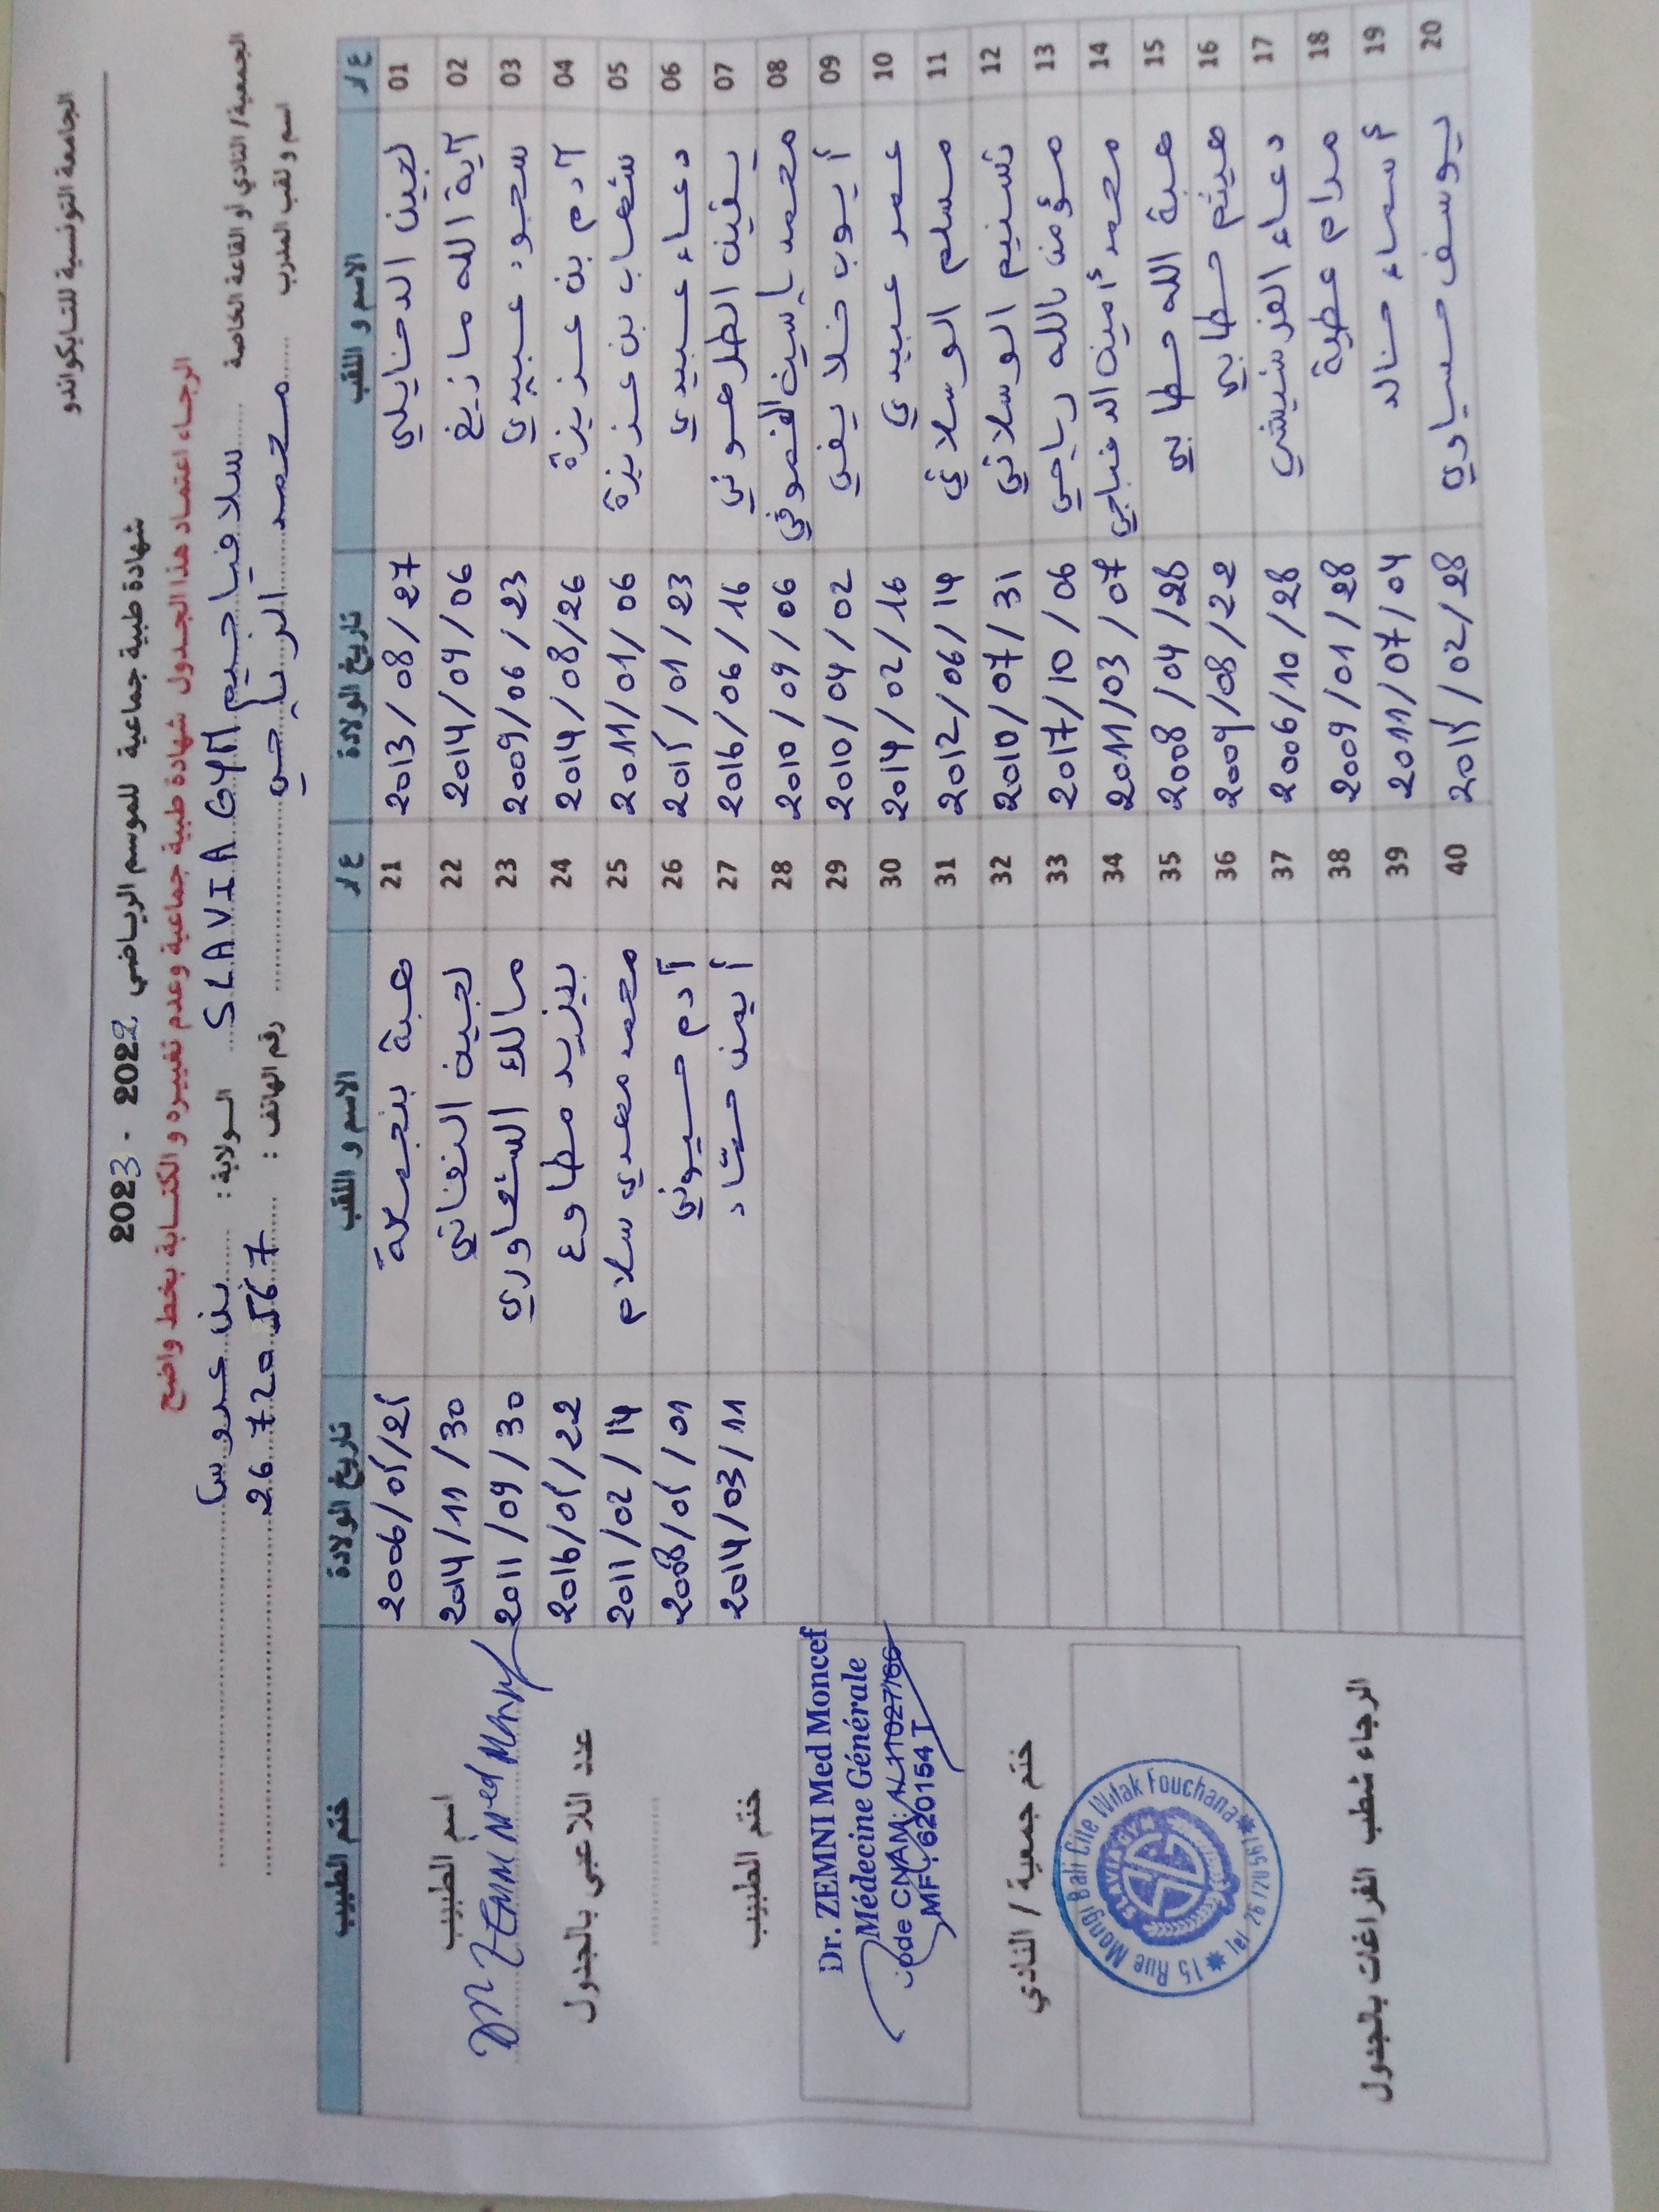 الجامعة التونسية للتايكواندو
شهادة طبية جماعية للموسم الرياضي 2022 - 2023
الرجاء اعتماد هذا الجدول شهادة طبية جماعية وعدم تغييره و الكتابة بخط واضح
الجمعية/ النادي أو القاعة الخاصة سلافيا جيم SLAVIA GYM الولاية : بن عروس
اسم و لقب المدرب محمد الرياحي رقم الهاتف : 26 720 567
ع/ر الاسم و اللقب تاريخ الولادة ع/ر الاسم و اللقب تاريخ الولادة ختم الطبيب
01 لجين الدخايلي 2013/08/27 21 هبة بنجمعة 2006/05/25
02 آية الله مازيغ 2014/09/06 22 لجين النفاتي 2014/11/30
03 سجود عبيدي 2009/06/23 23 مالك الشعاوري 2011/09/30
04 آدم بن عزيزة 2014/08/26 24 يزيد مطاوع 2016/05/22
05 شهاب بن عزيزة 2011/01/06 25 محمد مهدي سلام 2011/02/14
06 دعاء عبيدي 2015/01/23 26 آدم حسيوني 2008/05/01
07 يقين الطرهوني 2016/06/16 27 أيمن حشاد 2014/03/11
08 محمد ياسين 2010/09/06 28
09 أيوب خلايفي 2010/04/02 29
10 عمر عبيدي 2014/02/16 30
11 مسلم الوسلاتي 2012/06/14 31
12 تسنيم الوسلاتي 2010/07/31 32
13 مؤمن بالله رياحي 2017/10/06 33
14 محمد أمين الدغباجي 2011/03/07 34
15 هبة الله حطابي 2008/04/28 35
16 هيثم حطابي 2009/08/22 36
17 دعاء الفرشيشي 2006/10/28 37
18 مرام عطية 2009/01/28 38
19 أسماء خالد 2011/07/04 39
20 يوسف حساوي 2015/02/28 40
اسم الطبيب
Dr ZEMNI Med Moncef
عدد اللاعبي بالجدول
ختم الطبيب
Dr. ZEMNI Med Moncef
Médecine Générale
Code CNAM: 1/11027/66
MF: 620154 T
ختم جمعية / النادي
15 Rue Mongi Bali Cite Wifak Fouchana
Tel 26 720 567
SLAVIA GYM
الرجاء شطب الفراغات بالجدول